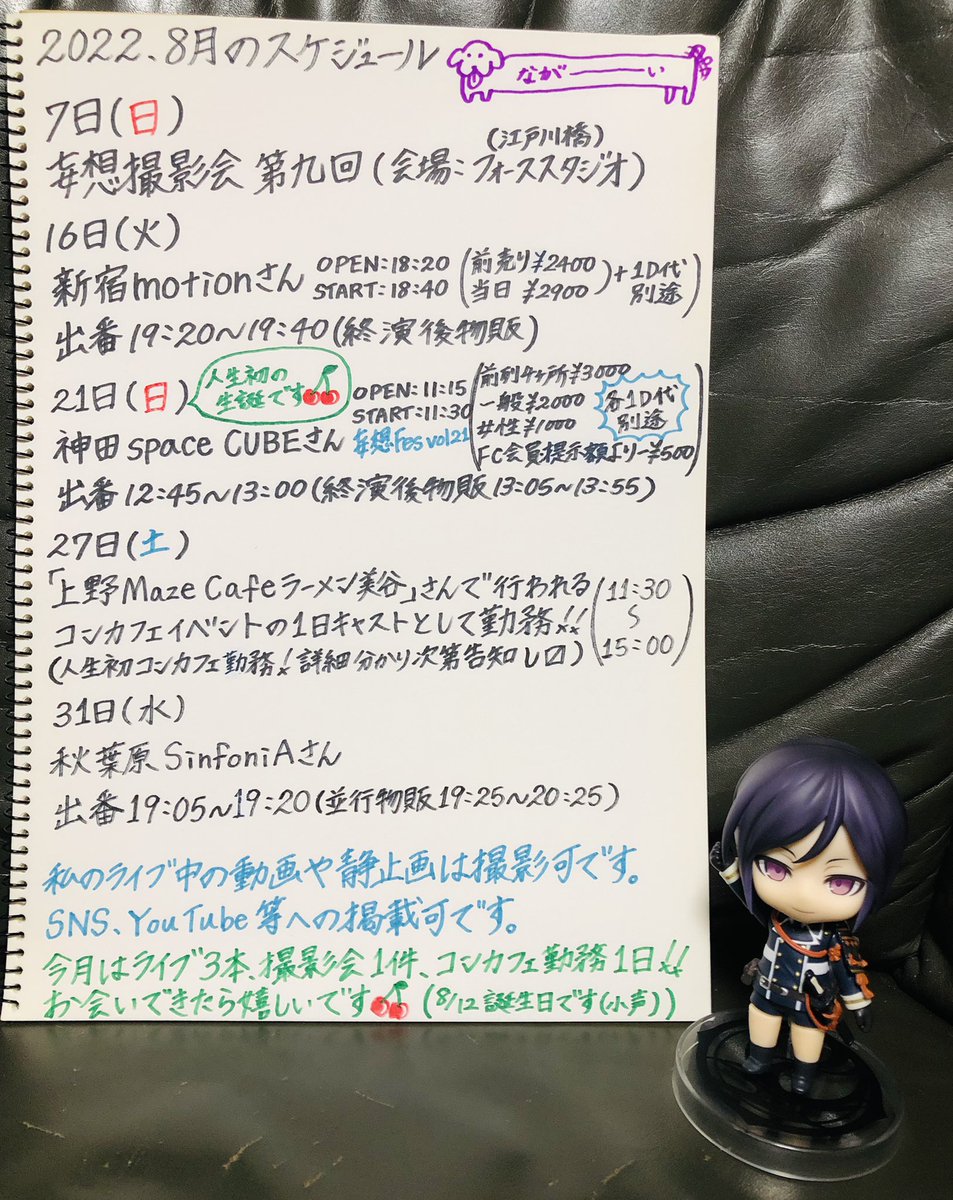 2022.8月のスケジュール
ながーーーい
7日(日)
(江戸川橋)
妄想撮影会 第九回(会場:フォーススタジオ)
16日(火)
新宿motionさん OPEN:18:20 START:18:40 (前売り¥2400 当日 ¥2900)+1D代別途
出番19:20〜19:40(終演後物販)
21日(日) 人生初の生誕です🍒 OPEN:11:15 START:11:30
神田space CUBEさん 妄想Fes vol21
前列4ヶ所¥3000
一般¥2000
女性¥1000
FC会員提示額より-¥500
各1D代別途
出番12:45〜13:00(終演後物販13:05〜13:55)
27日(土)
「上野Maze Cafeラーメン美谷」さんで行われる (11:30〜15:00)
コンカフェイベントの1日キャストとして勤務!!
(人生初コンカフェ勤務!詳細分かり次第告知し〼)
31日(水)
秋葉原SinfoniAさん
出番19:05〜19:20(並行物販19:25〜20:25)
私のライブ中の動画や静止画は撮影可です。
SNS、YouTube等への掲載可です。
今月はライブ3本、撮影会1件、コンカフェ勤務1日!!
お会いできたら嬉しいです🍒(8/12誕生日です(小声))